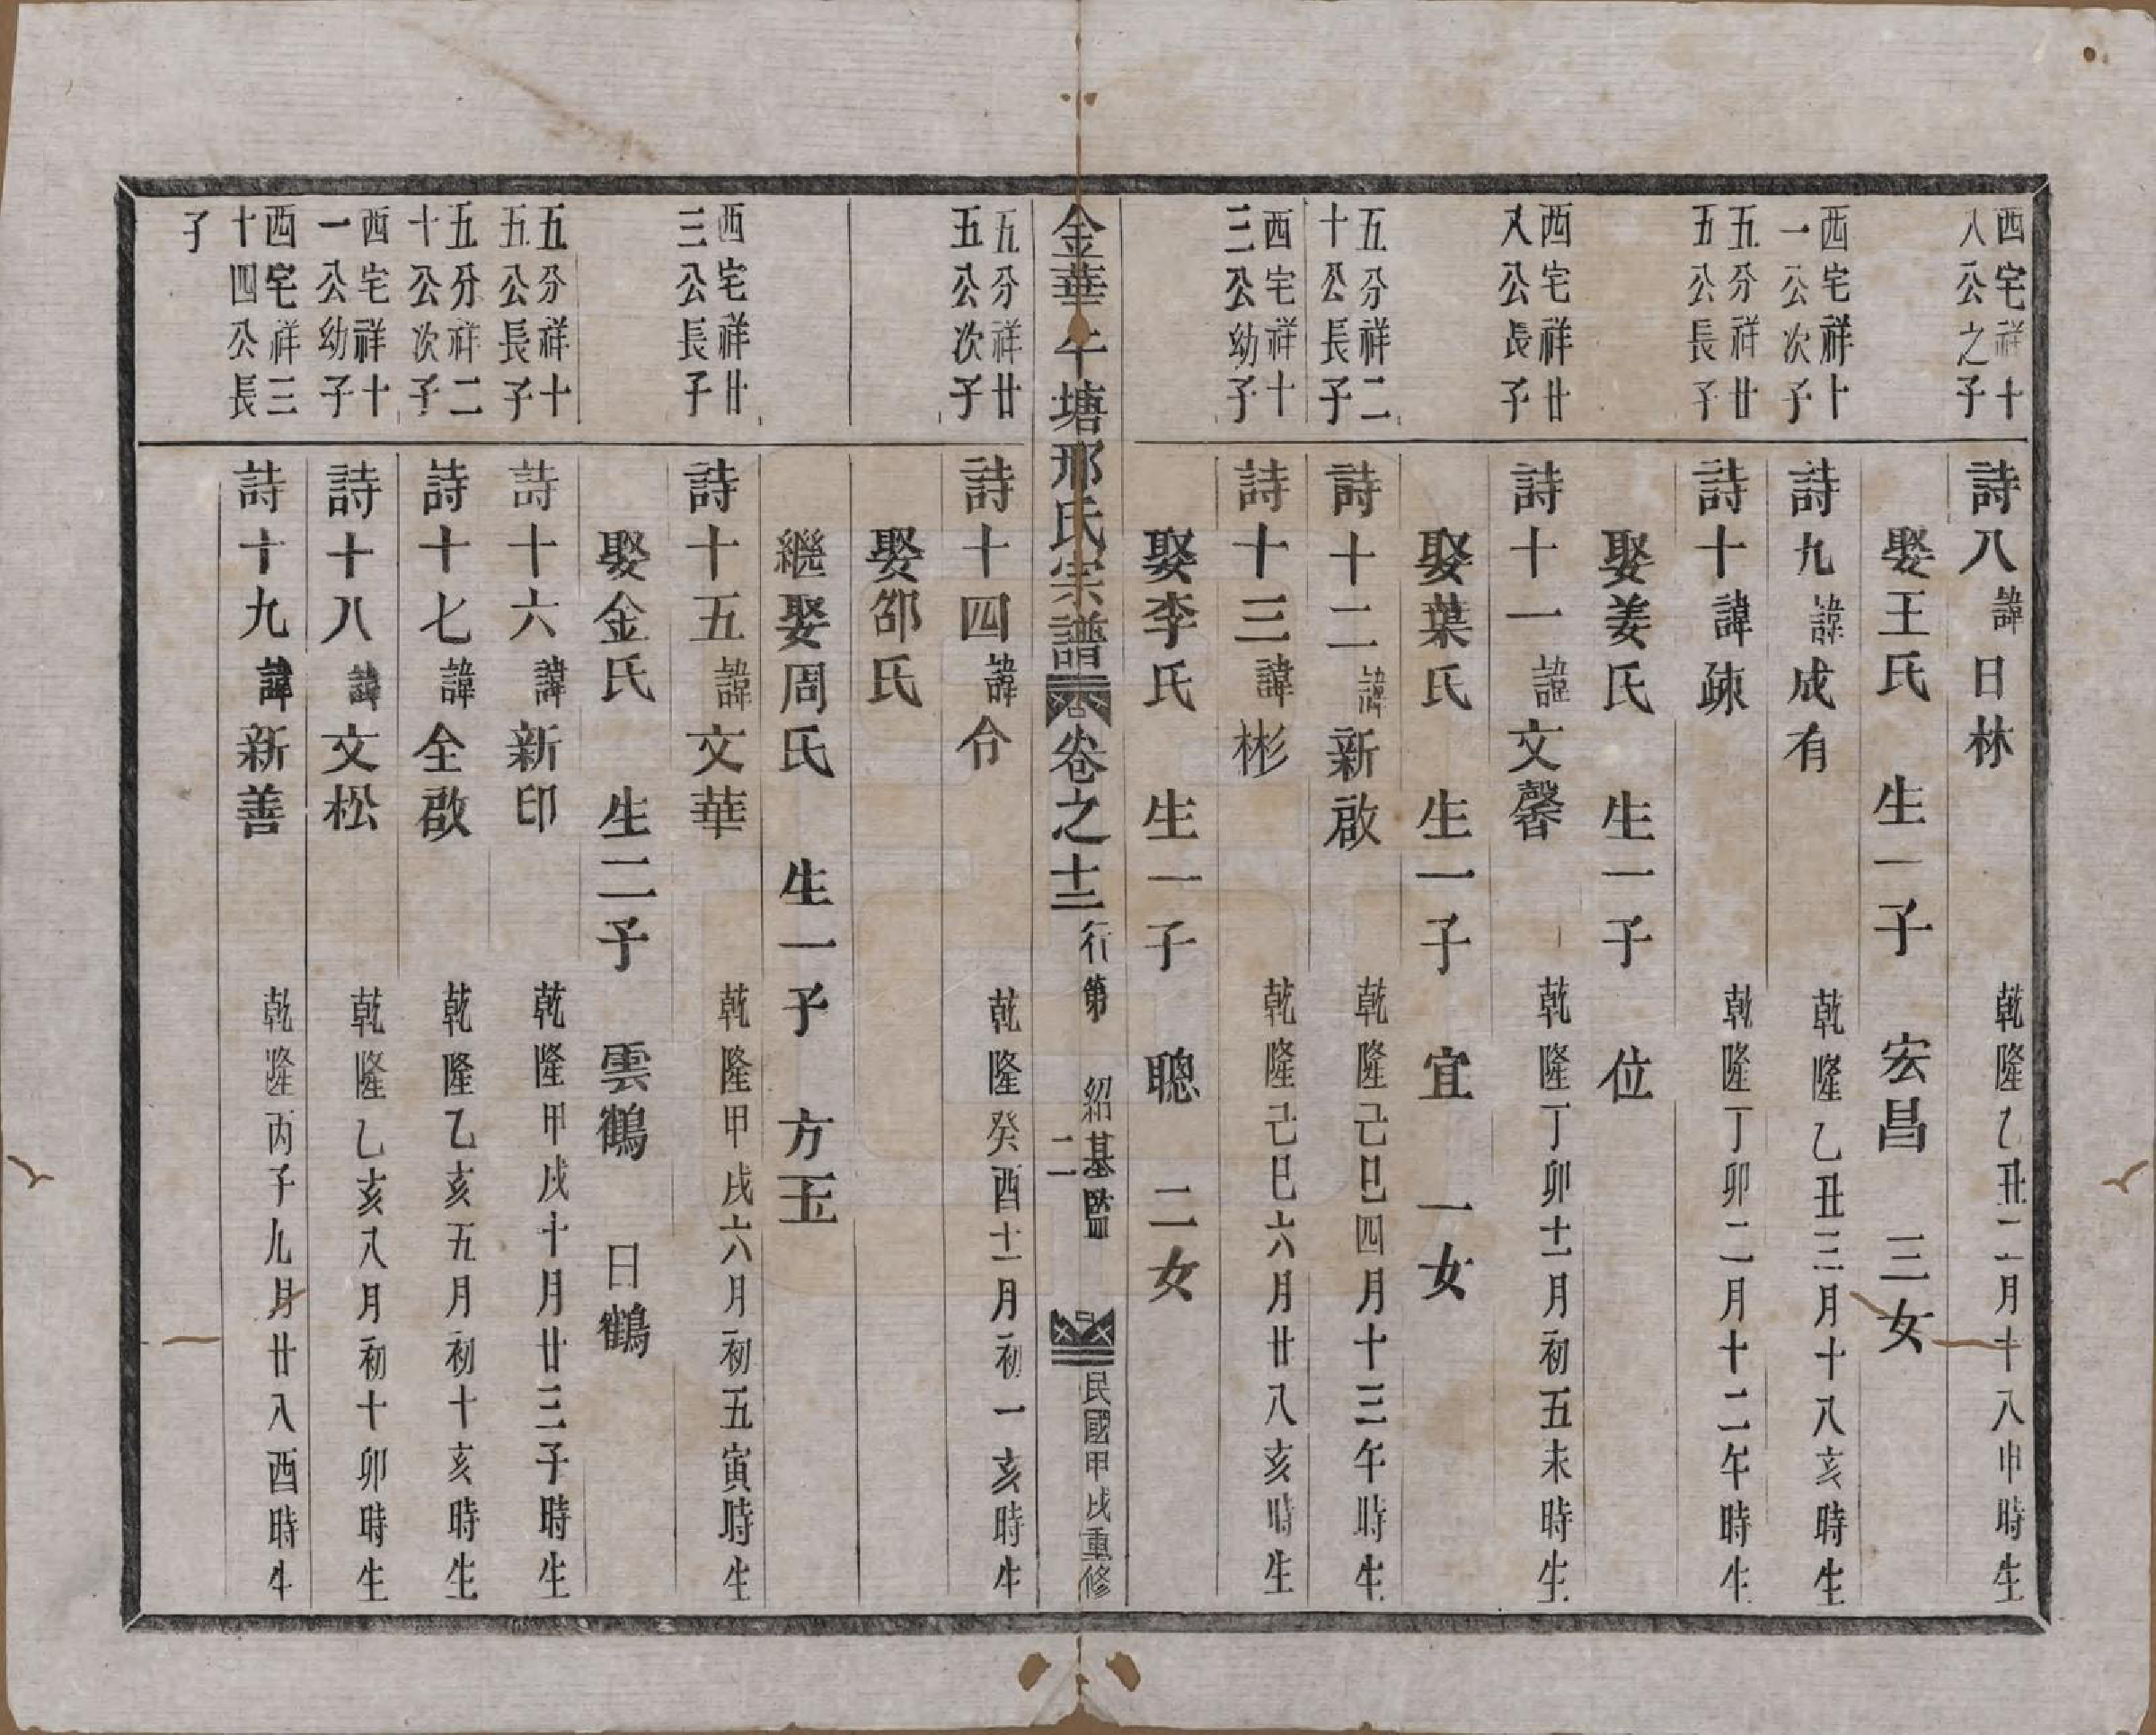 西宅祥十
八公之子
詩八諱日林 乾隆乙丑二月十八申時生
娶王氏 生一子 宏昌 三女
西宅祥十
一公次子
詩九諱成有 乾隆乙丑三月十八亥時生
五分祥廿
五公長子
詩十諱疎 乾隆丁卯二月十二午時生
娶姜氏 生一子 位
西宅祥廿
八公長子
詩十一諱文馨 乾隆丁卯十一月初五未時生
娶葉氏 生一子 宜 一女
五分祥二
十公長子
詩十二諱新啟 乾隆己巳四月十三午時生
西宅祥十
三公幼子
詩十三諱彬 乾隆己巳六月廿八亥時生
娶李氏 生一子 聰 二女
金華午塘邢氏宗譜 卷之十三 行第 紹基監 二 民國甲戌重修
五分祥廿
五公次子
詩十四諱令 乾隆癸酉十一月初一亥時生
娶邵氏
繼娶周氏 生一子 方玉
西宅祥廿
三公長子
詩十五諱文華 乾隆甲戌六月初五寅時生
娶金氏 生二子 雲鶴 日鶴
五分祥十
五公長子
詩十六諱新印 乾隆甲戌十月廿三子時生
五分祥二
十公次子
詩十七諱全啟 乾隆乙亥五月初十亥時生
西宅祥十
一公幼子
詩十八諱文松 乾隆乙亥八月初十卯時生
西宅祥三
十四公長
子
詩十九諱新善 乾隆丙子九月廿八酉時生